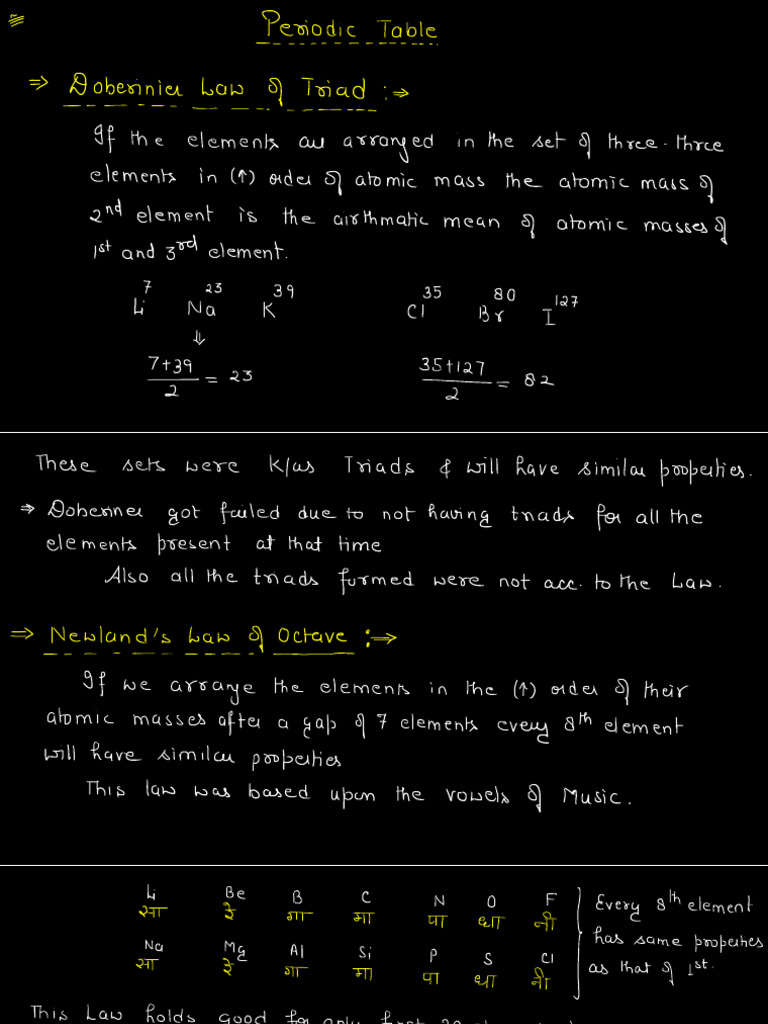 Periodic Table
⇒ Doberinier Law of Triad :→
If the elements are arranged in the set of three-three
elements in (↑) order of atomic mass the atomic mass of
2nd element is the airthmatic mean of atomic masses of
1st and 3rd element.
Li 7 Na 23 K 39 Cl 35 Br 80 I 127
⇓
7+39/2 = 23 35+127/2 = 82
These sets were K/as Triads & will have similar properties.
→ Doberiner got failed due to not having triads for all the
elements present at that time
Also all the triads formed were not acc. to the Law.
⇒ Newland's Law of Octave :→
If we arrange the elements in the (↑) order of their
atomic masses after a gap of 7 elements every 8th element
will have similar properties
This law was based upon the vowels of Music.
Li Be B C N O F
सा रे गा मा पा धा नी
Na Mg Al Si P S Cl
सा रे गा मा पा धा नी
Every 8th element
has same properties
as that of 1st.
This Law holds good for only first 20